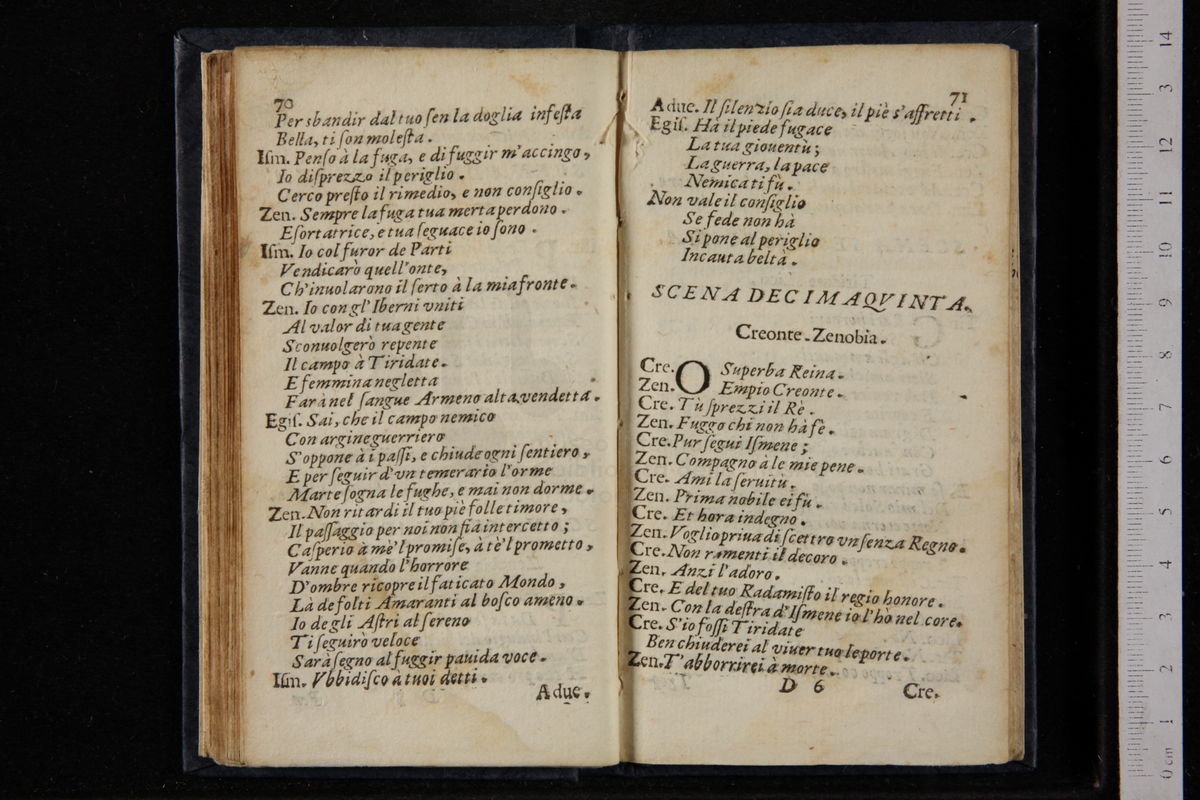 70
Per sbandir dal tuo ſen la doglia infeſta
Bella, ti ſon moleſta.
Iſm. Penſo à la fuga, e di fuggir m'accingo,
Io diſprezzo il periglio.
Cerco preſto il rimedio, e non conſiglio.
Zen. Sempre la fuga tua merta perdono.
Eſortatrice, e tua ſeguace io ſono.
Iſm. Io col furor de Parti
Vendicarò quell'onte,
Ch'inuolarono il ſerto à la mia fronte.
Zen. Io con gl'Iberni vniti
Al valor di tua gente
Sconuolgerò repente
Il campo à Tiridate.
E femmina negletta
Farà nel ſangue Armeno alta vendetta.
Egiſ. Sai, che il campo nemico
Con argine guerriero
S'oppone à i paſſi, e chiude ogni ſentiero,
E per ſeguir d'vn temerario l'orme
Marte ſogna le fughe, e mai non dorme.
Zen. Non ritardi il tuo piè folle timore,
Il paſſaggio per noi non fia intercetto;
Caſperio à mè'l promiſe, à tè'l prometto,
Vanne quando l'horrore
D'ombre ricopre il faticato Mondo,
Là de folti Amaranti al boſco ameno.
Io degli Aſtri al ſereno
Ti ſeguirò veloce
Sarà ſegno al fuggir pauida voce.
Iſm. Vbbidiſco a tuoi detti.
A due.
71
A due. Il ſilenzio ſia duce, il piè s'affretti.
Egiſ. Hà il piede fugace
La tua giouentù;
La guerra, la pace
Nemica ti fù.
Non vale il conſiglio
Se fede non hà
Si pone al periglio
Incauta beltà.
SCENA DECIMAQVINTA.
Creonte. Zenobia.
Cre. O Superba Reina.
Zen. Empio Creonte.
Cre. Tù ſprezzi il Rè.
Zen. Fuggo chi non hà fè.
Cre. Pur ſegui Iſmene;
Zen. Compagno à le mie pene.
Cre. Ami la ſeruitù.
Zen. Prima nobile ei fù.
Cre. Et hora indegno.
Zen. Voglio priua di ſcettro vn ſenza Regno.
Cre. Non ramenti il decoro.
Zen. Anzi l'adoro.
Cre. E del tuo Radamiſto il regio honore.
Zen. Con la deſtra d'Iſmene io l'hò nel core.
Cre. S'io foſſi Tiridate
Ben chiuderei al viuer tuo le porte.
Zen. T'abborrirei à morte.
D 6
Cre.
0 cm 1 2 3 4 5 6 7 8 9 10 11 12 3 14